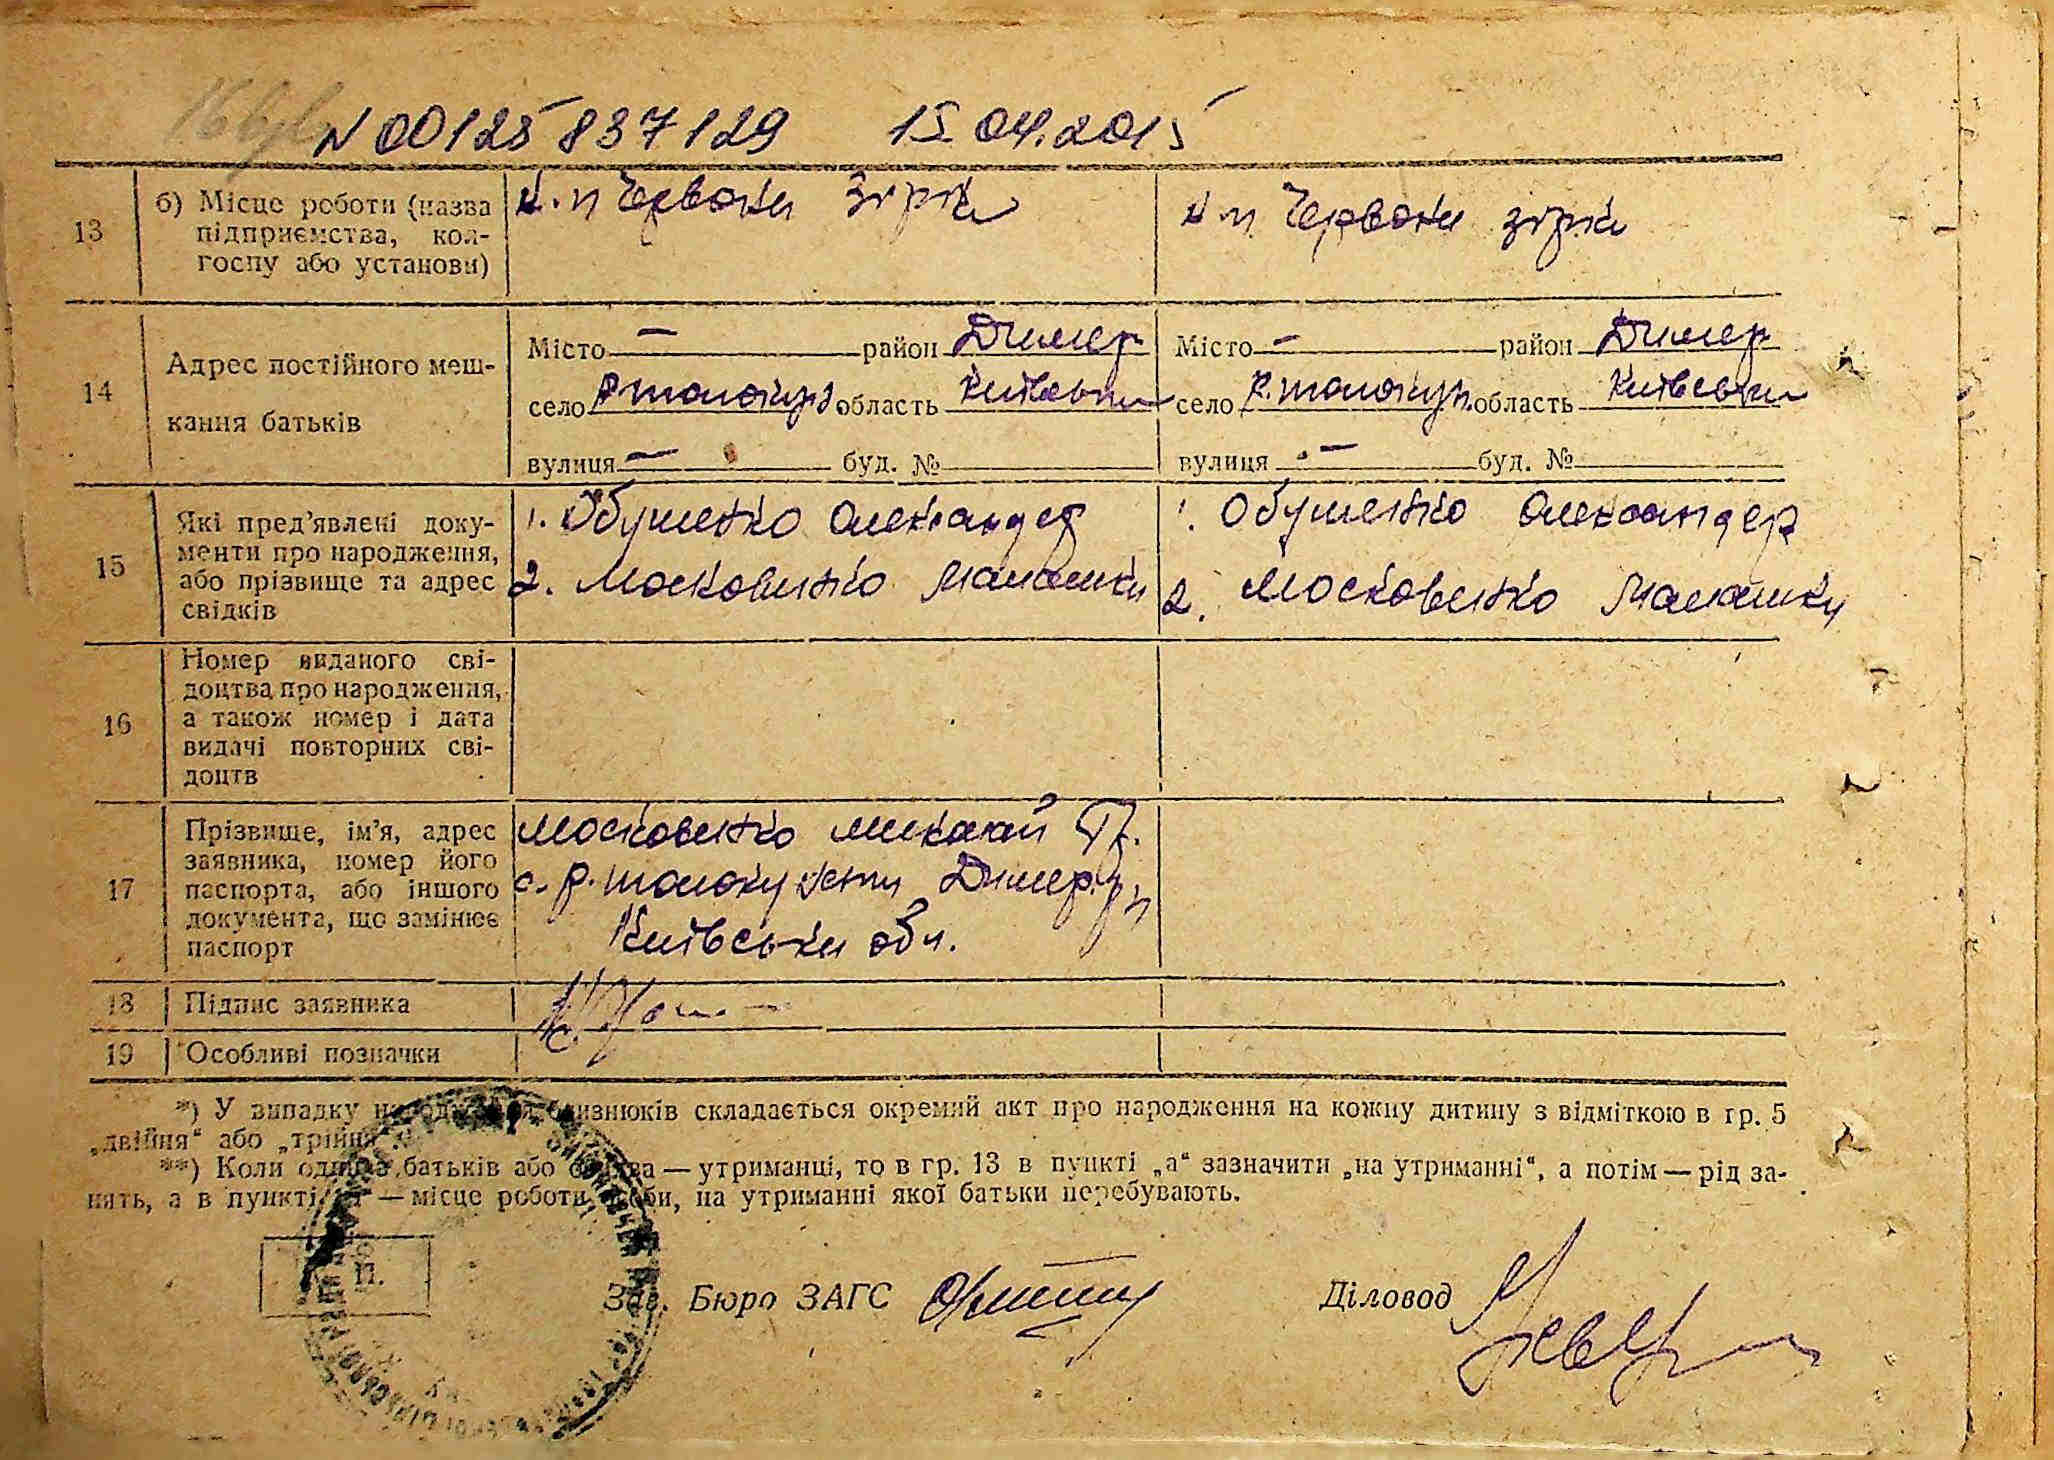 N 00125837129 15.04.2015
13
б) Місце роботи (назва
підприємства, кол-
госпу або установи)
к. п Червони Зірки
к п. Червони зірки
14
Адрес постійного меш-
кання батьків
Місто — район Димер
село Р.толокун область Київськи
вулиця — буд. №
Місто — район Димер
село Р.толокун. область Київськи
вулиця — буд. №
15
Які пред'явлені доку-
менти про народження,
або прізвище та адрес
свідків
1. Обушенко Олександер
2. Московенко Малашки
1. Обушенко Олександер
2. Московенко Малашки
16
Номер виданого сві-
доцтва про народження,
а також номер і дата
видачі повторних сві-
доцтв
17
Прізвище, ім'я, адрес
заявника, номер його
паспорта, або іншого
документа, що замінює
паспорт
Московенко Миколай П.
с. Р. толокунспи Димер. рн
Київськи обл.
18
Підпис заявника
19
Особливі позначки
*) У випадку народження близнюків складається окремий акт про народження на кожну дитину з відміткою в гр. 5
„двійня“ або „трійня“.
**) Коли один з батьків або обидва — утриманці, то в гр. 13 в пункті „а“ зазначити „на утриманні“, а потім — рід за-
нять, а в пункті „б“ — місце роботи особи, на утриманні якої батьки перебувають.
П.
Зав. Бюро ЗАГС
Діловод